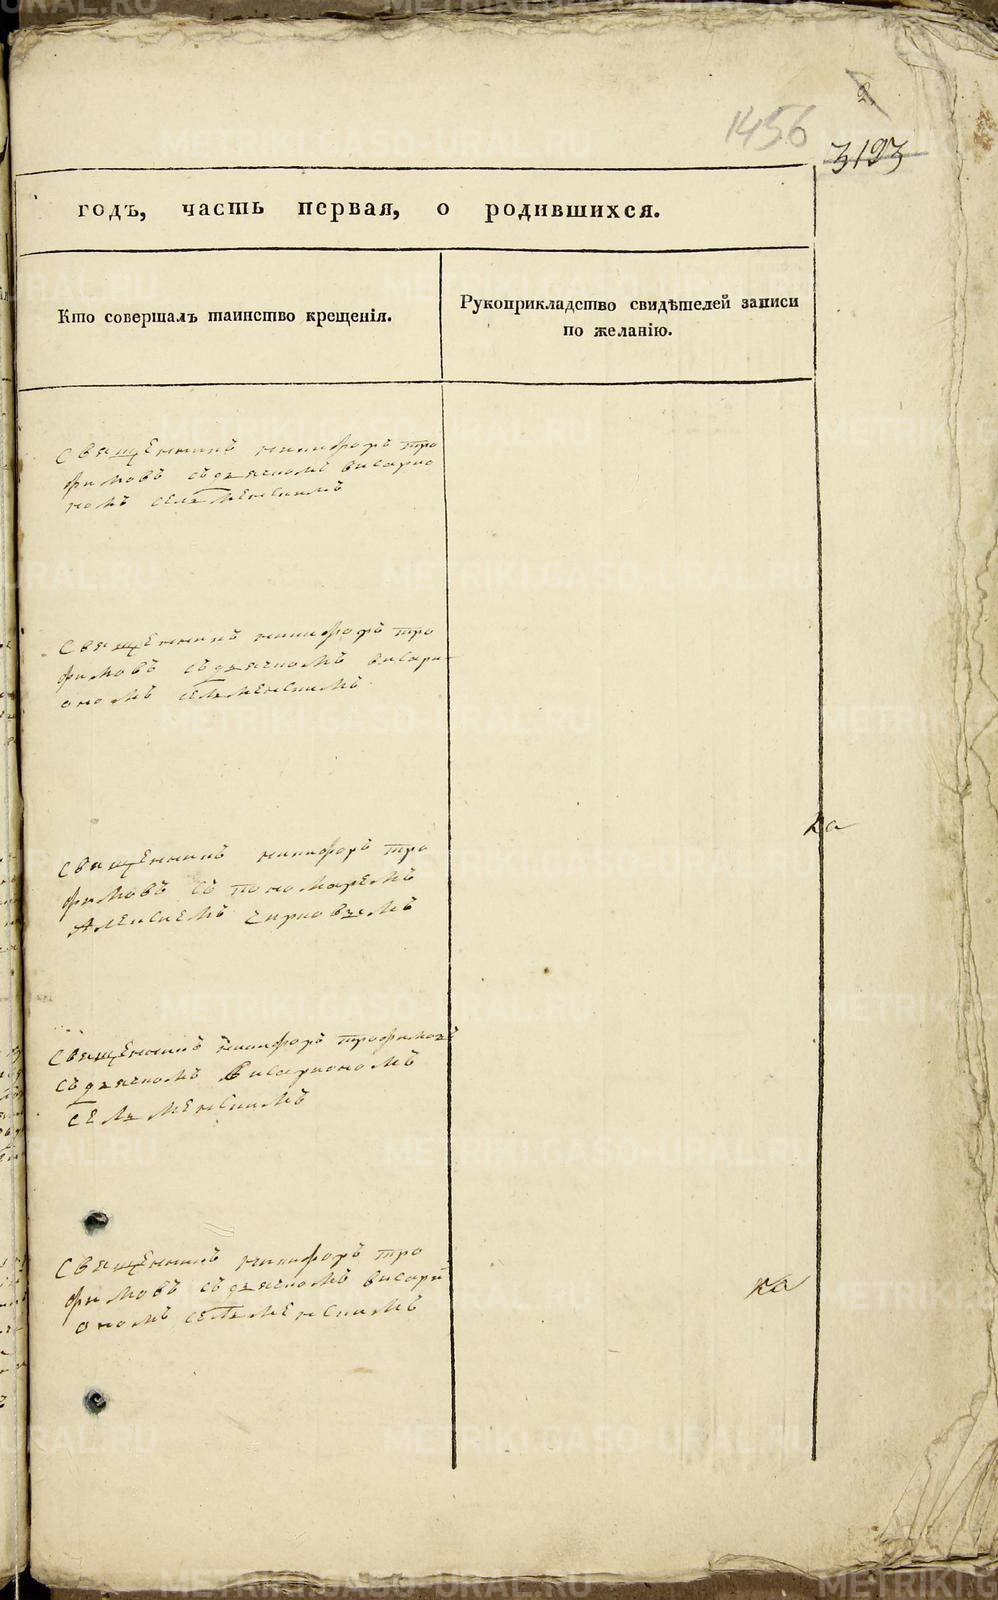 2
1456
3193
годъ, часть первая, о родившихся.
Кто совершалъ таинство крещенія.
Рукоприкладство свидѣтелей записи
по желанію.
Священникъ никифоръ тро
фимовъ съ дьячкомъ висарио
номъ селѣменскимъ
Священникъ никифоръ тро
фимовъ съ дьячкомъ висари
ономъ селѣменскимъ
ка
Священникъ никифоръ тро
фимовъ съ пономаремъ
Алексѣемъ
Священникъ никифоръ трофимовъ
съ дьячкомъ Висариономъ
селѣменскимъ
Священникъ никифоръ тро
фимовъ съ дьячкомъ висари
ономъ селѣменскимъ
ка
METRIKI.GASO-URAL.RU